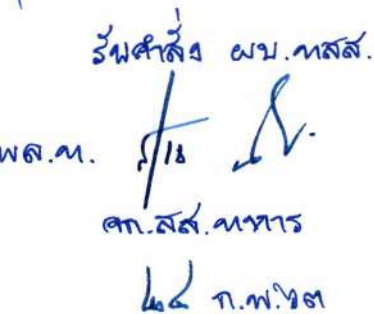 รับคำสั่ง ผบ.ทสส.
พล.ท.
จก.สส.ทหาร
๒๔ ก.พ. ๖๓